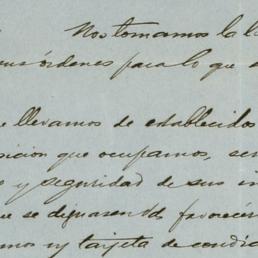 Nos tomamos la l
sus órdenes para lo que
e llevamos de establecidos
sicion que ocupamos, ser
y seguridad de sus in
ue se dignasen Vd. favorecer
mos uy tarjeta de condic